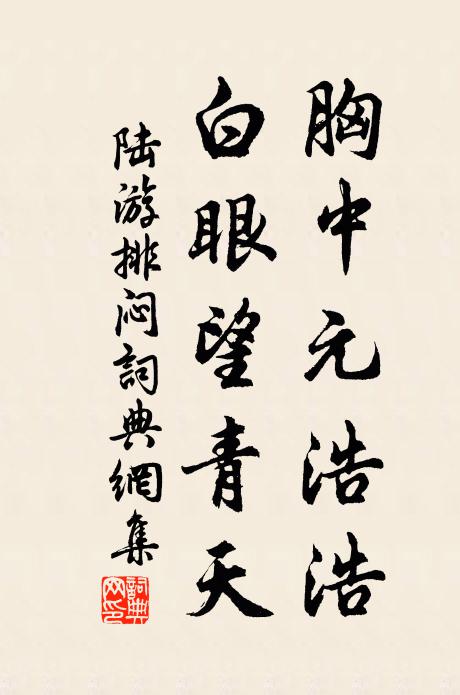 胸中元浩浩
白眼望青天
陆游排闷詞典網集
詞典
网印